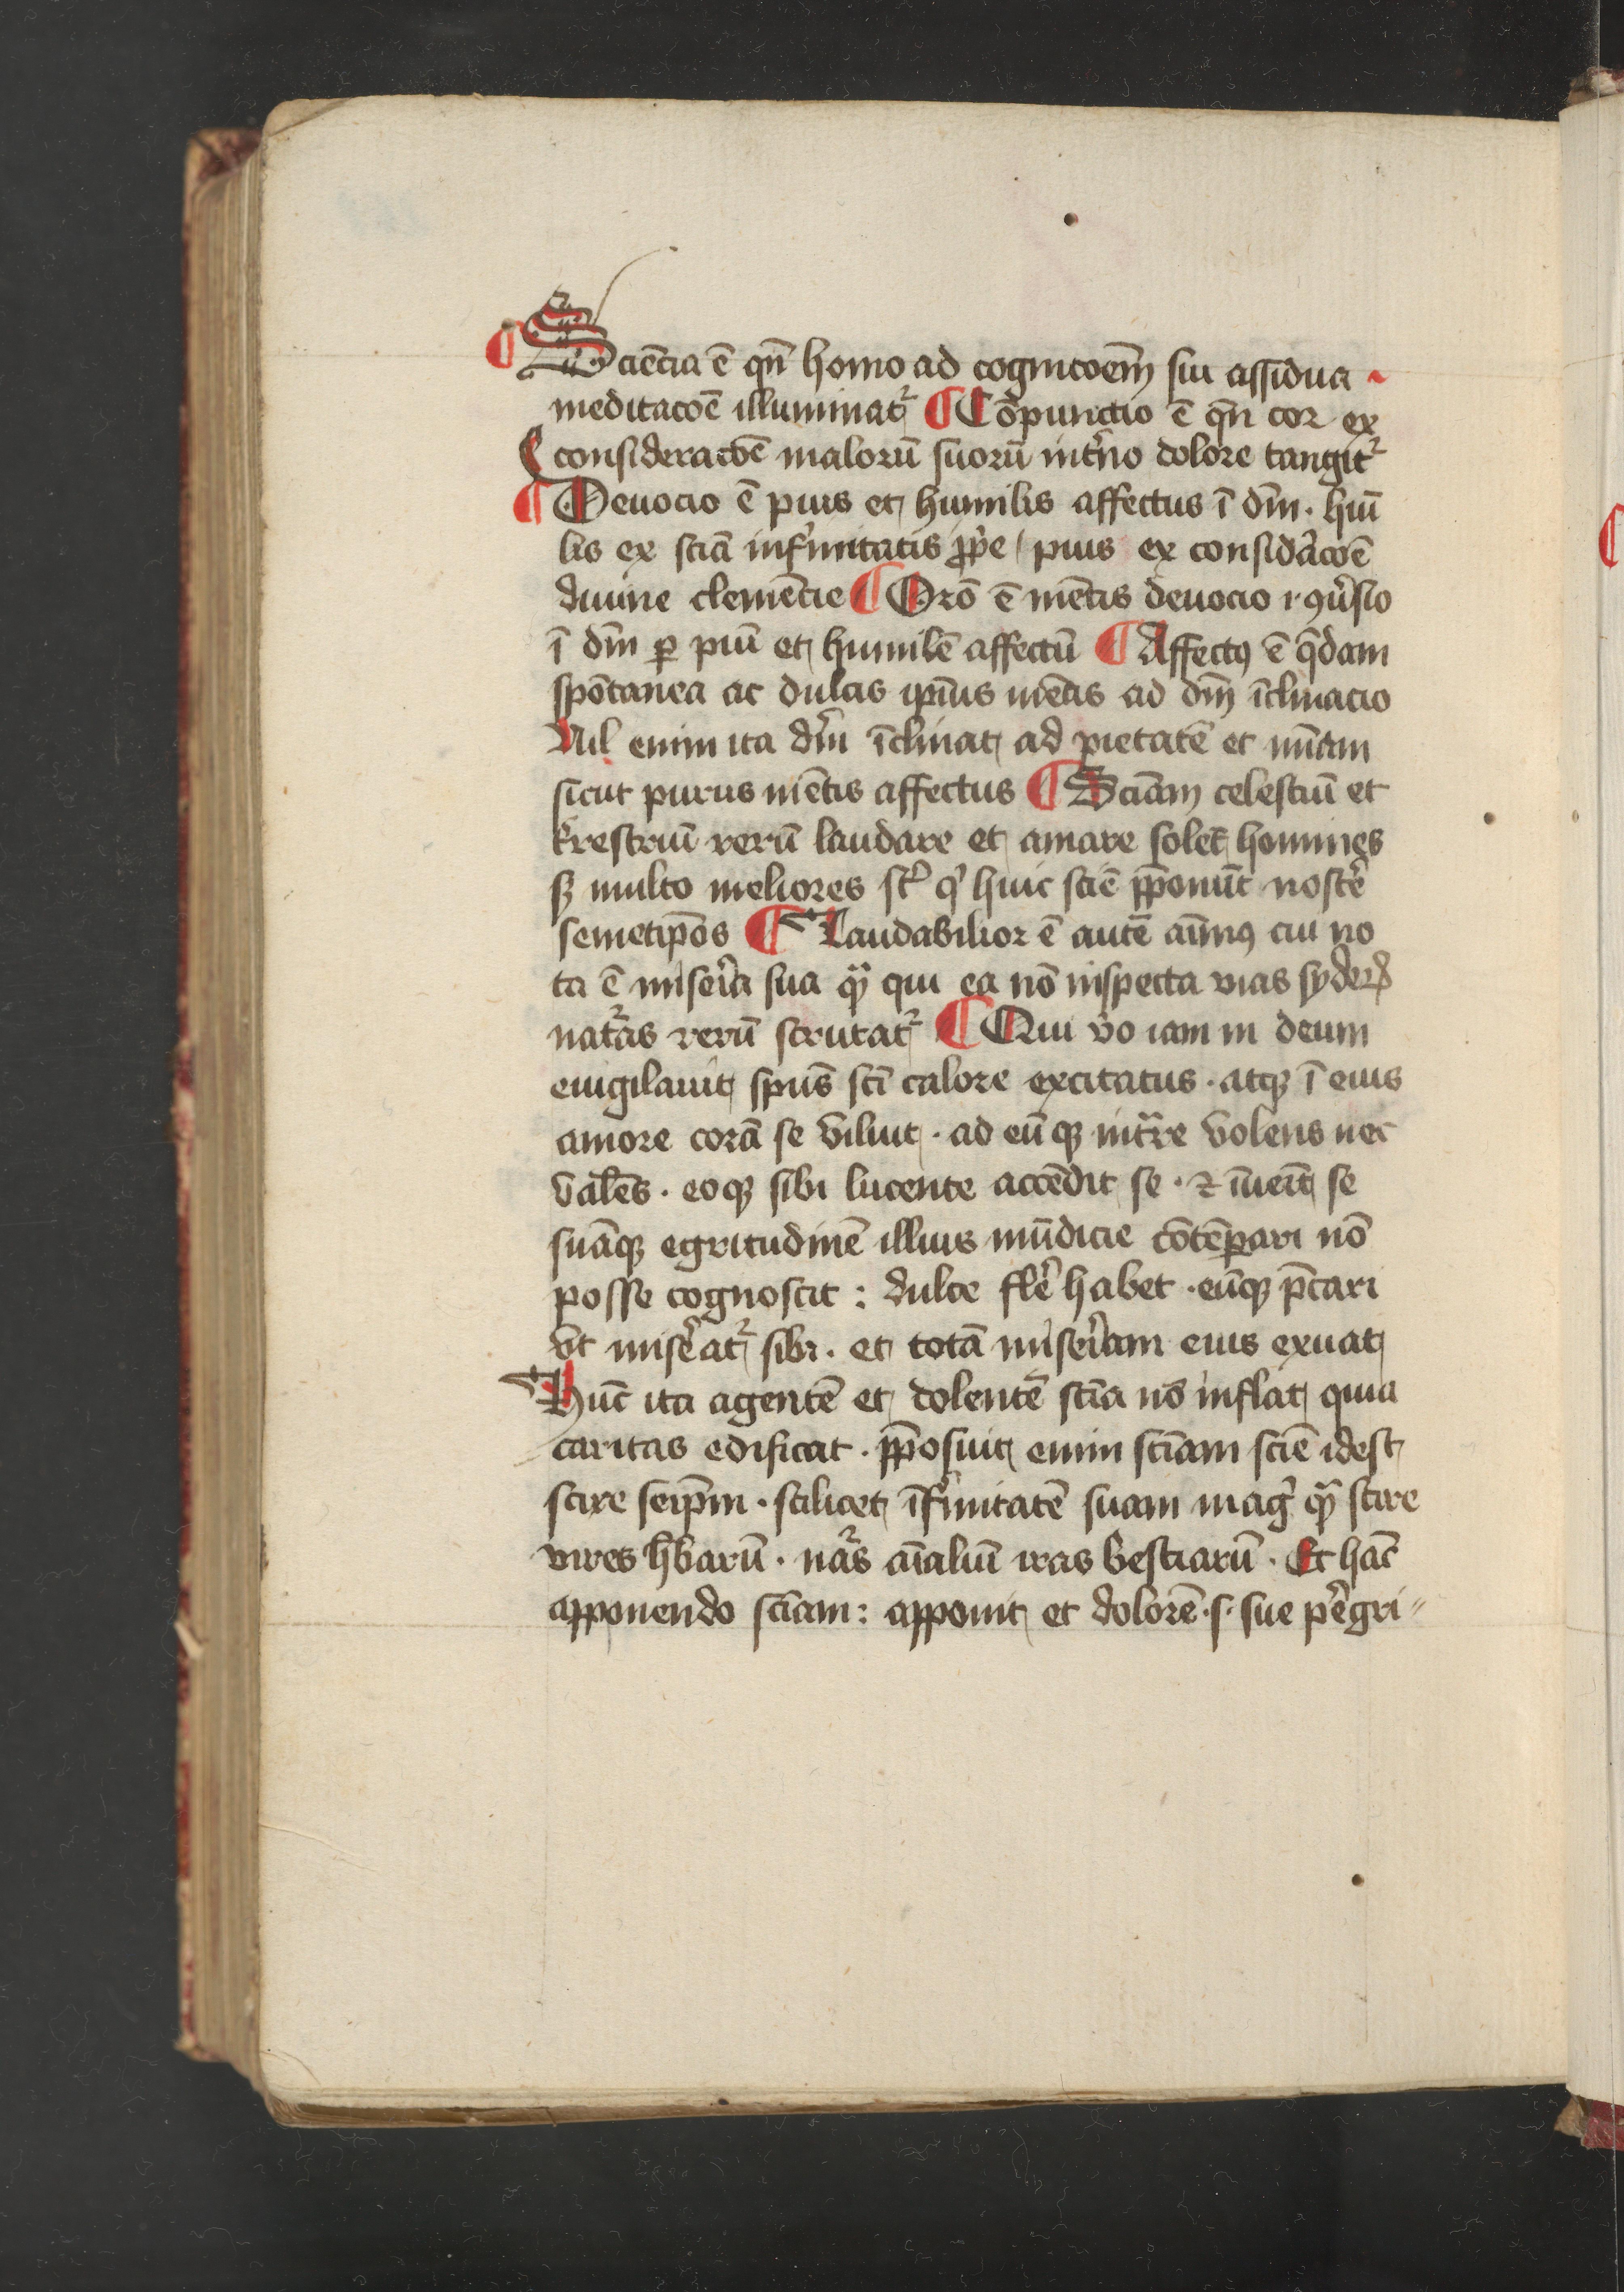 ¶ Sciēcia ē qn̄ homo ad cognicoēm sui assidua
meditacōe illuminat᷑ ¶ Cōpunctio ē qn̄ cor ex
consideracōe malorū suorū int̓no dolore tangit᷑
¶ Deuocio ē pius et humilis affectus ī dm̄ . hui̅
lis ex sciā infi̓mitatis ꝓp̓e / pius ex consid̓acōe
diuine clemēcie ¶ Orō ē mētis deuocio .i. ꝯu̓sio
ī dm̄ ꝑ piū et humilē affectū ¶ Affectꝰ ē q̄dam
spōtanea ac dulcis ip̄ius mētis ad dm̄ īclinacio
Nil enim ita dm̄ īclinat ad pietatē et mi̅am
sicut purus mētis affectus ¶ Sciām celestiū et
t̓restriū rerū laudare et amare solēt homines
sꝫ multo meliores st̓ q̓ huic sciē p̄ponūt nosc̓e
semetip̄os ¶ Laudabilior ē autē aīmꝯ cui no
ta ē mise̓ia sua qͣ qui ea nō inspecta vias syderꝝ
nat᷑as rerū scrutat᷑ ¶ Qui v̓o iam in deum
euigilauit spūs scī calore excitatus . atqꝫ ī eius
amore corā se viluit . ad eū qꝫ intͣre volens nec
valēs . eoqꝫ sibi lucente accēdit se . ⁊ īueīt se
suāqꝫ egritudinē illius mūdicie cōtēꝑari nō
posse cognoscit : dulce fle̓ habet . eūqꝫ p̄cari
vt mise̓at᷑ sibi . et totā mise̓iam eius exuat
Hūc ita agentē et dolentē scīa nō inflat quia
caritas edificat . p̄posuit enim sciam sciē idest
scire seip̄m . scilicet īfi̓mitatē suam mag̓ qͣ scire
vires h̓barū . na᷑s aīaliū iras bestiarū . Et hāc
apponendo sciam : apponit et dolorē .s. sue pe̓gri⸗